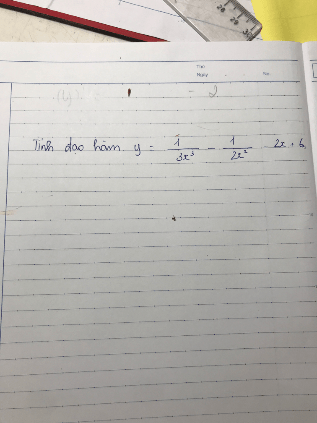 Thứ
Ngày
Tính đạo hàm y = 1/3x³ - 1/2x² 2x + 6